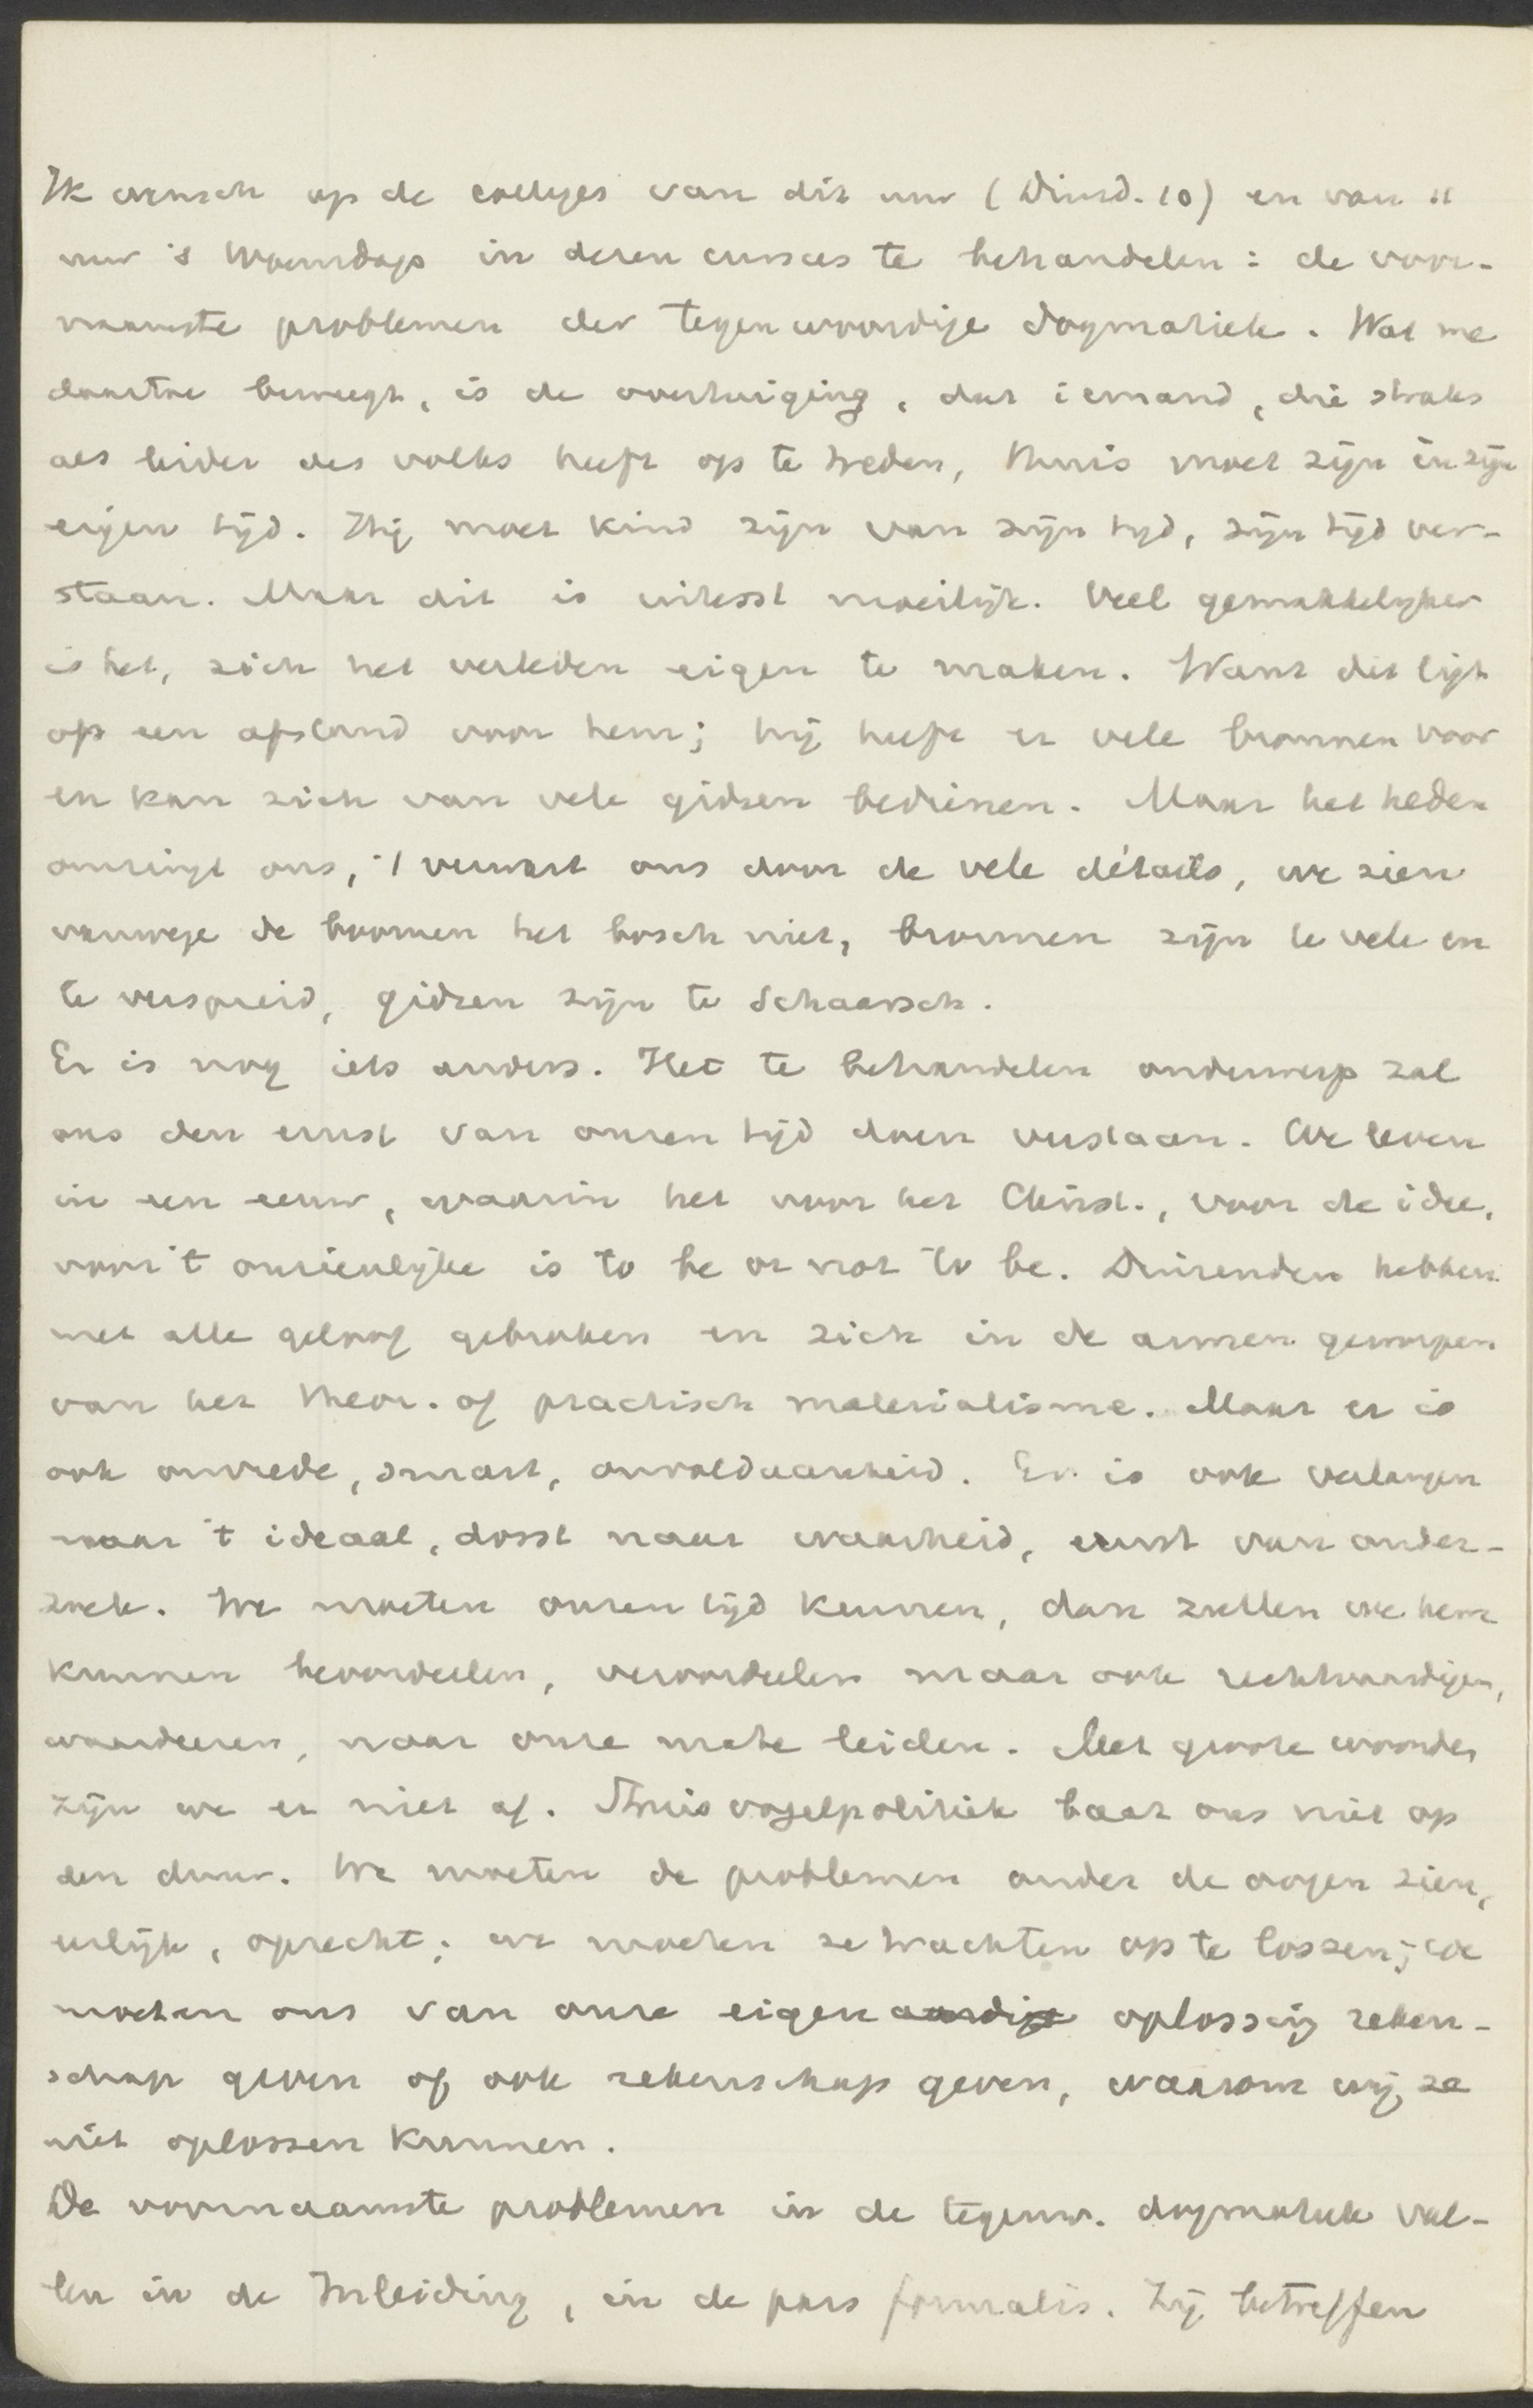 Ik wensch op de colleges van dit uur (Dinsd. 10) en van 11
uur 's Woensdags in dezen cursus te behandelen: de voor-
naamste problemen der tegenwoordige dogmatiek. Wat me
daartoe beweegt, is de overtuiging, dat iemand, die straks
als leider des volks heeft op te treden, thuis moet zijn in zijn
eigen tijd. Hij moet kind zijn van zijn tijd, zijn tijd ver-
staan. Maar dit is uiterst moeilijk. Veel gemakkelijker
is het, zich het verleden eigen te maken. Want dit ligt
op een afstand voor hem; hij heeft er vele bronnen voor
en kan zich van vele gidsen bedienen. Maar het heden
omringt ons, 't verwart ons door de vele détails, we zien
vanwege de boomen het bosch niet, bronnen zijn te vele en
te verspreid, gidsen zijn te schaarsch.
Er is nog iets anders. Het te behandelen onderwerp zal
ons den ernst van onzen tijd doen verstaan. We leven
in een eeuw, waarin het voor het Christ., voor de idee,
voor 't onzienlijke is to be or not to be. Duizenden hebben
met alle geloof gebroken en zich in de armen geworpen
van het theor. of practisch materialisme. Maar er is
ook onvrede, smart, onvoldaanheid. Er is ook verlangen
naar 't ideaal, dorst naar waarheid, ernst van onder-
zoek. We moeten onzen tijd kennen, dan zullen we hem
kunnen beoordeelen, veroordeelen maar ook rechtvaardigen,
waardeeren, naar onze mate leiden. Met groote woorden
zijn we er niet af. Struisvogelpolitiek baat ons niet op
den duur. We moeten de problemen onder de oogen zien,
eerlijk, oprecht; we moeten ze trachten op te lossen; we
moeten ons van onze eigenaardige oplossing reken-
schap geven of ook rekenschap geven, waarom wij ze
niet oplossen kunnen.
De voornaamste problemen in de tegenw. dogmatiek val-
len in de Inleiding, in de pars formalis. Zij betreffen